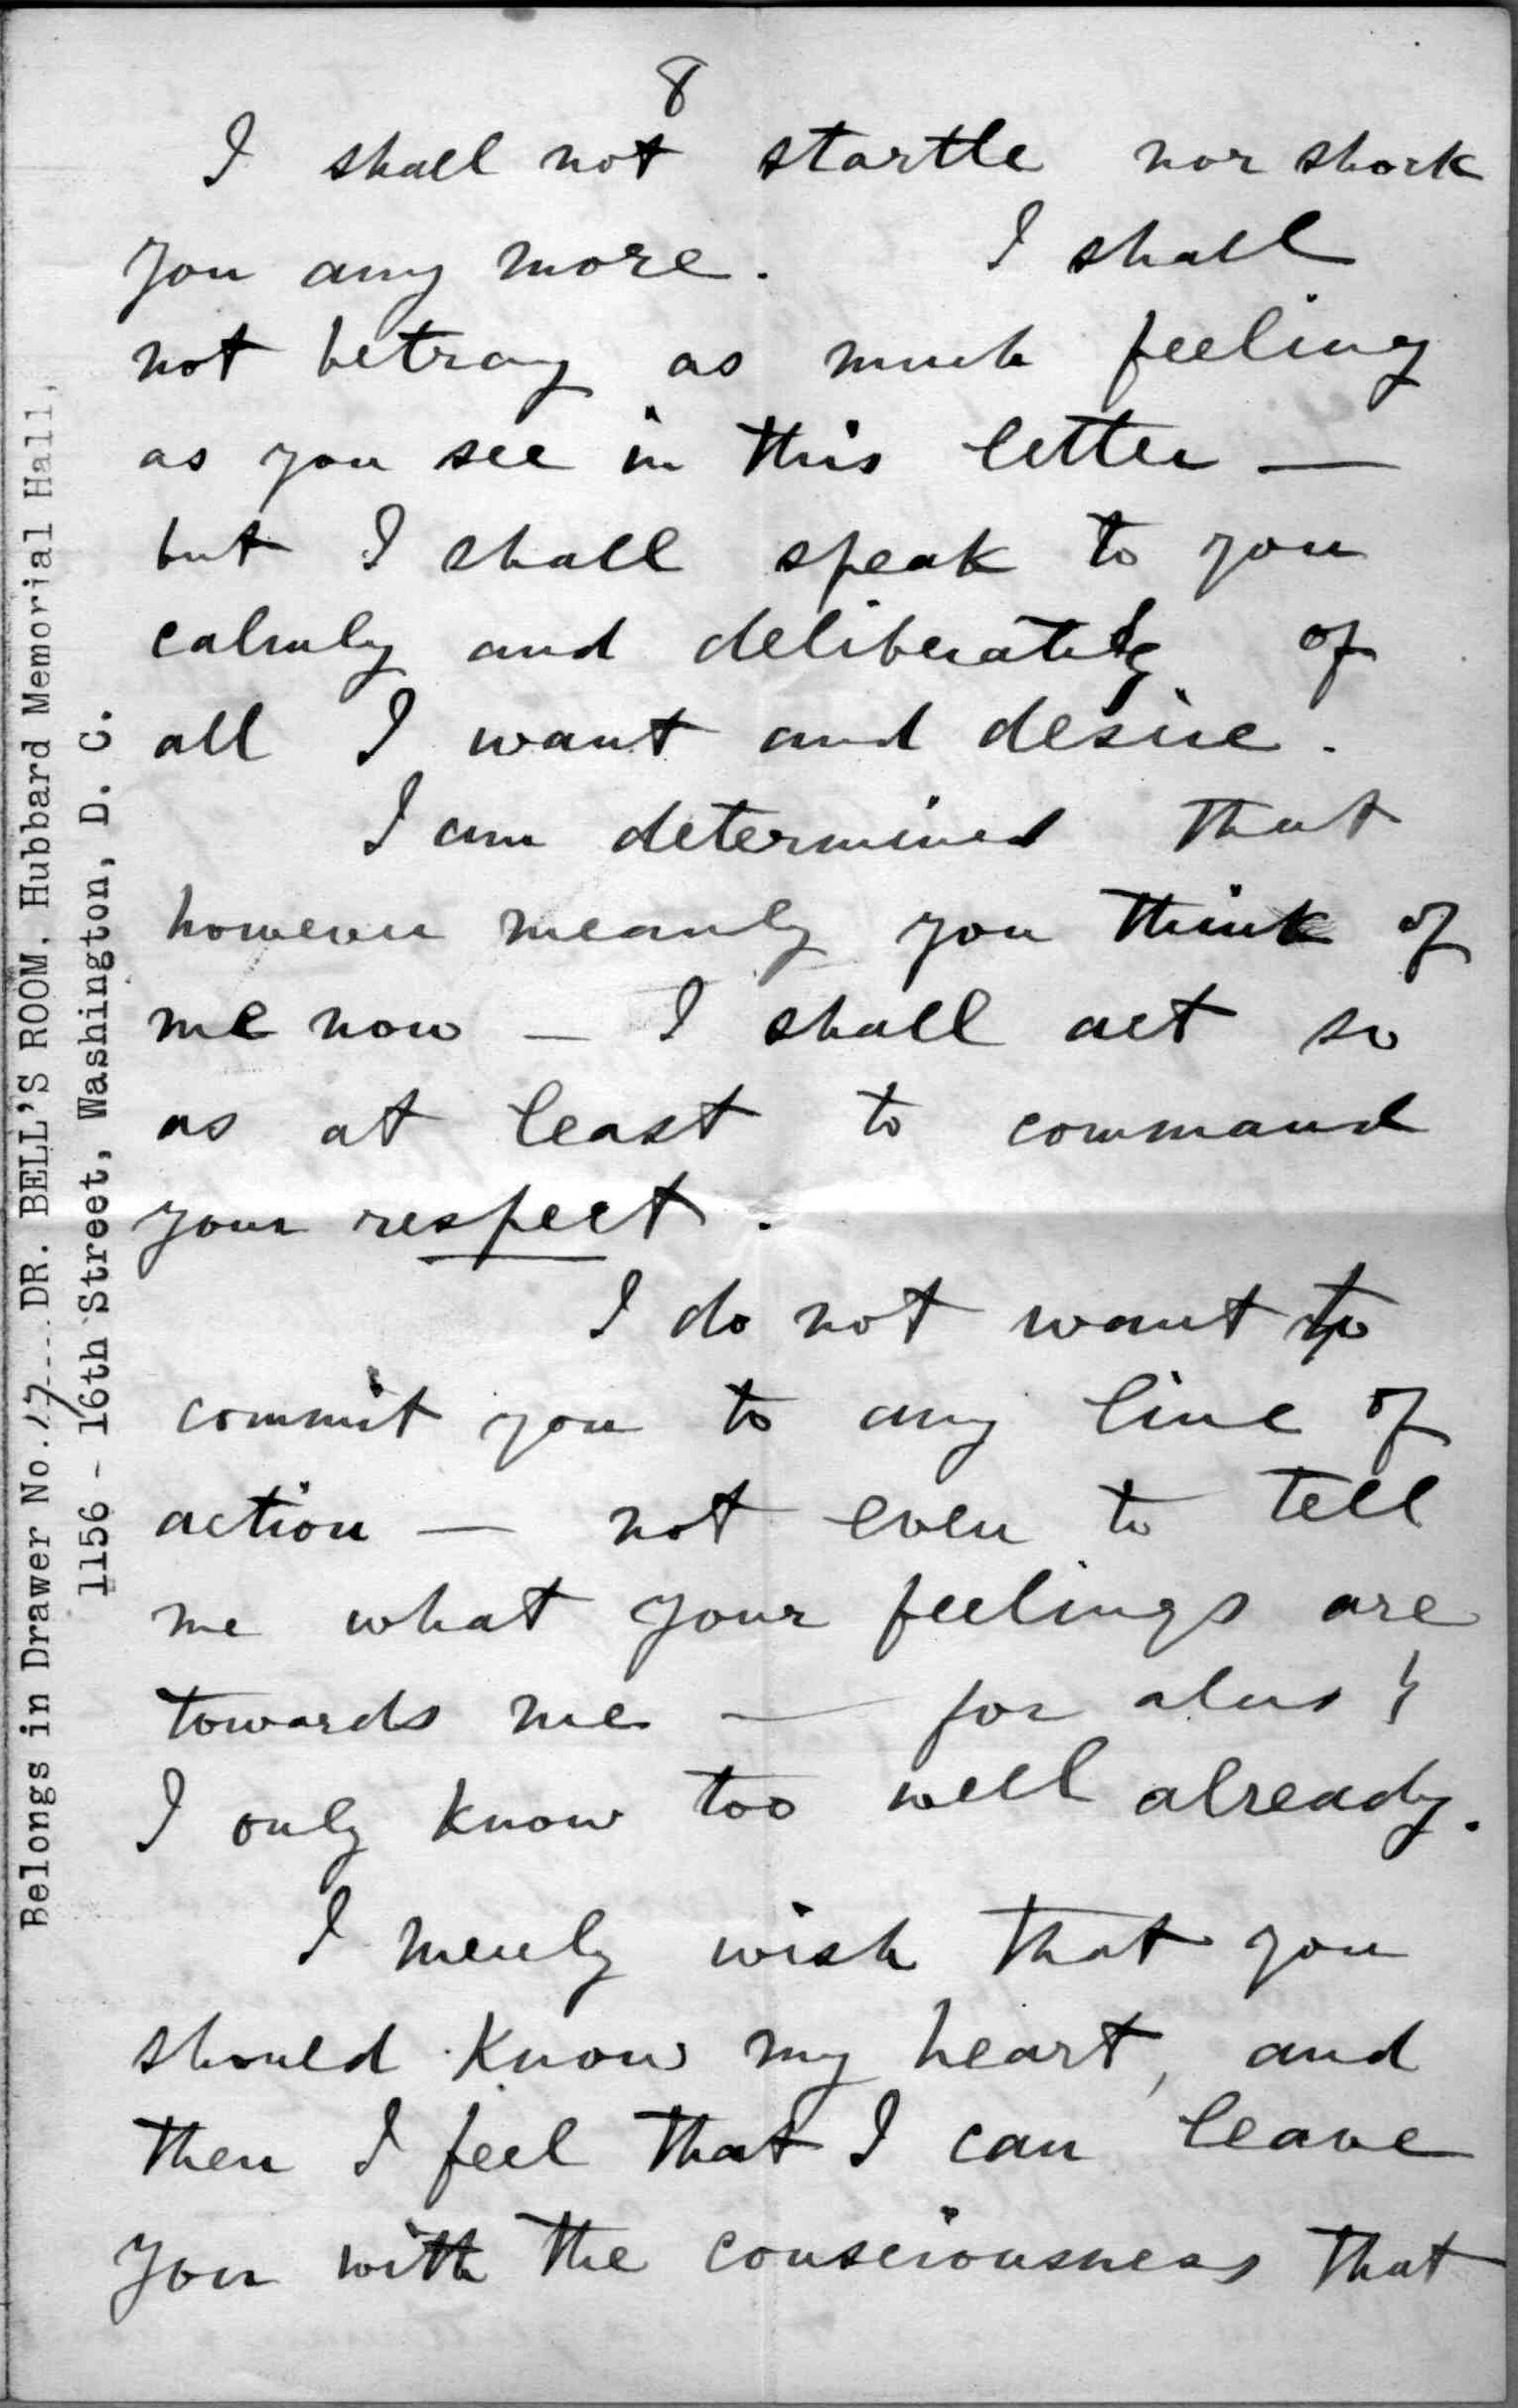 8
I shall not startle nor shock
you any more. I shall
not betray as much feeling
as you see in this letter —
but I shall speak to you
calmly and deliberately of
all I want and desire.
I am determined that
however meanly you think of
me now — I shall act so
as at least to command
your respect.
I do not want to
commit you to any line of
action — not even to tell
me what your feelings are
towards me — for alas!
I only know too well already.
I merely wish that you
should know my heart, and
then I feel that I can leave
you with the consciousness that
Belongs in Drawer No. 17....DR. BELL'S ROOM, Hubbard Memorial Hall,
1156 - 16th Street, Washington, D. C.